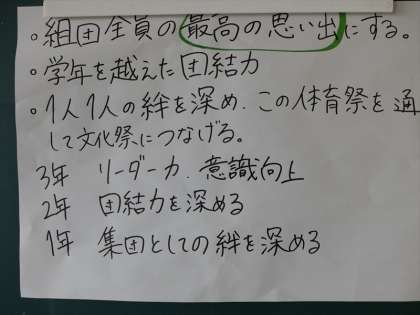 ・組団全員の最高の思い出にする。
・学年を越えた団結力
・1人1人の絆を深め、この体育祭を通
して文化祭につなげる。
3年 リーダー力、意識向上
2年 団結力を深める
1年 集団としての絆を深める